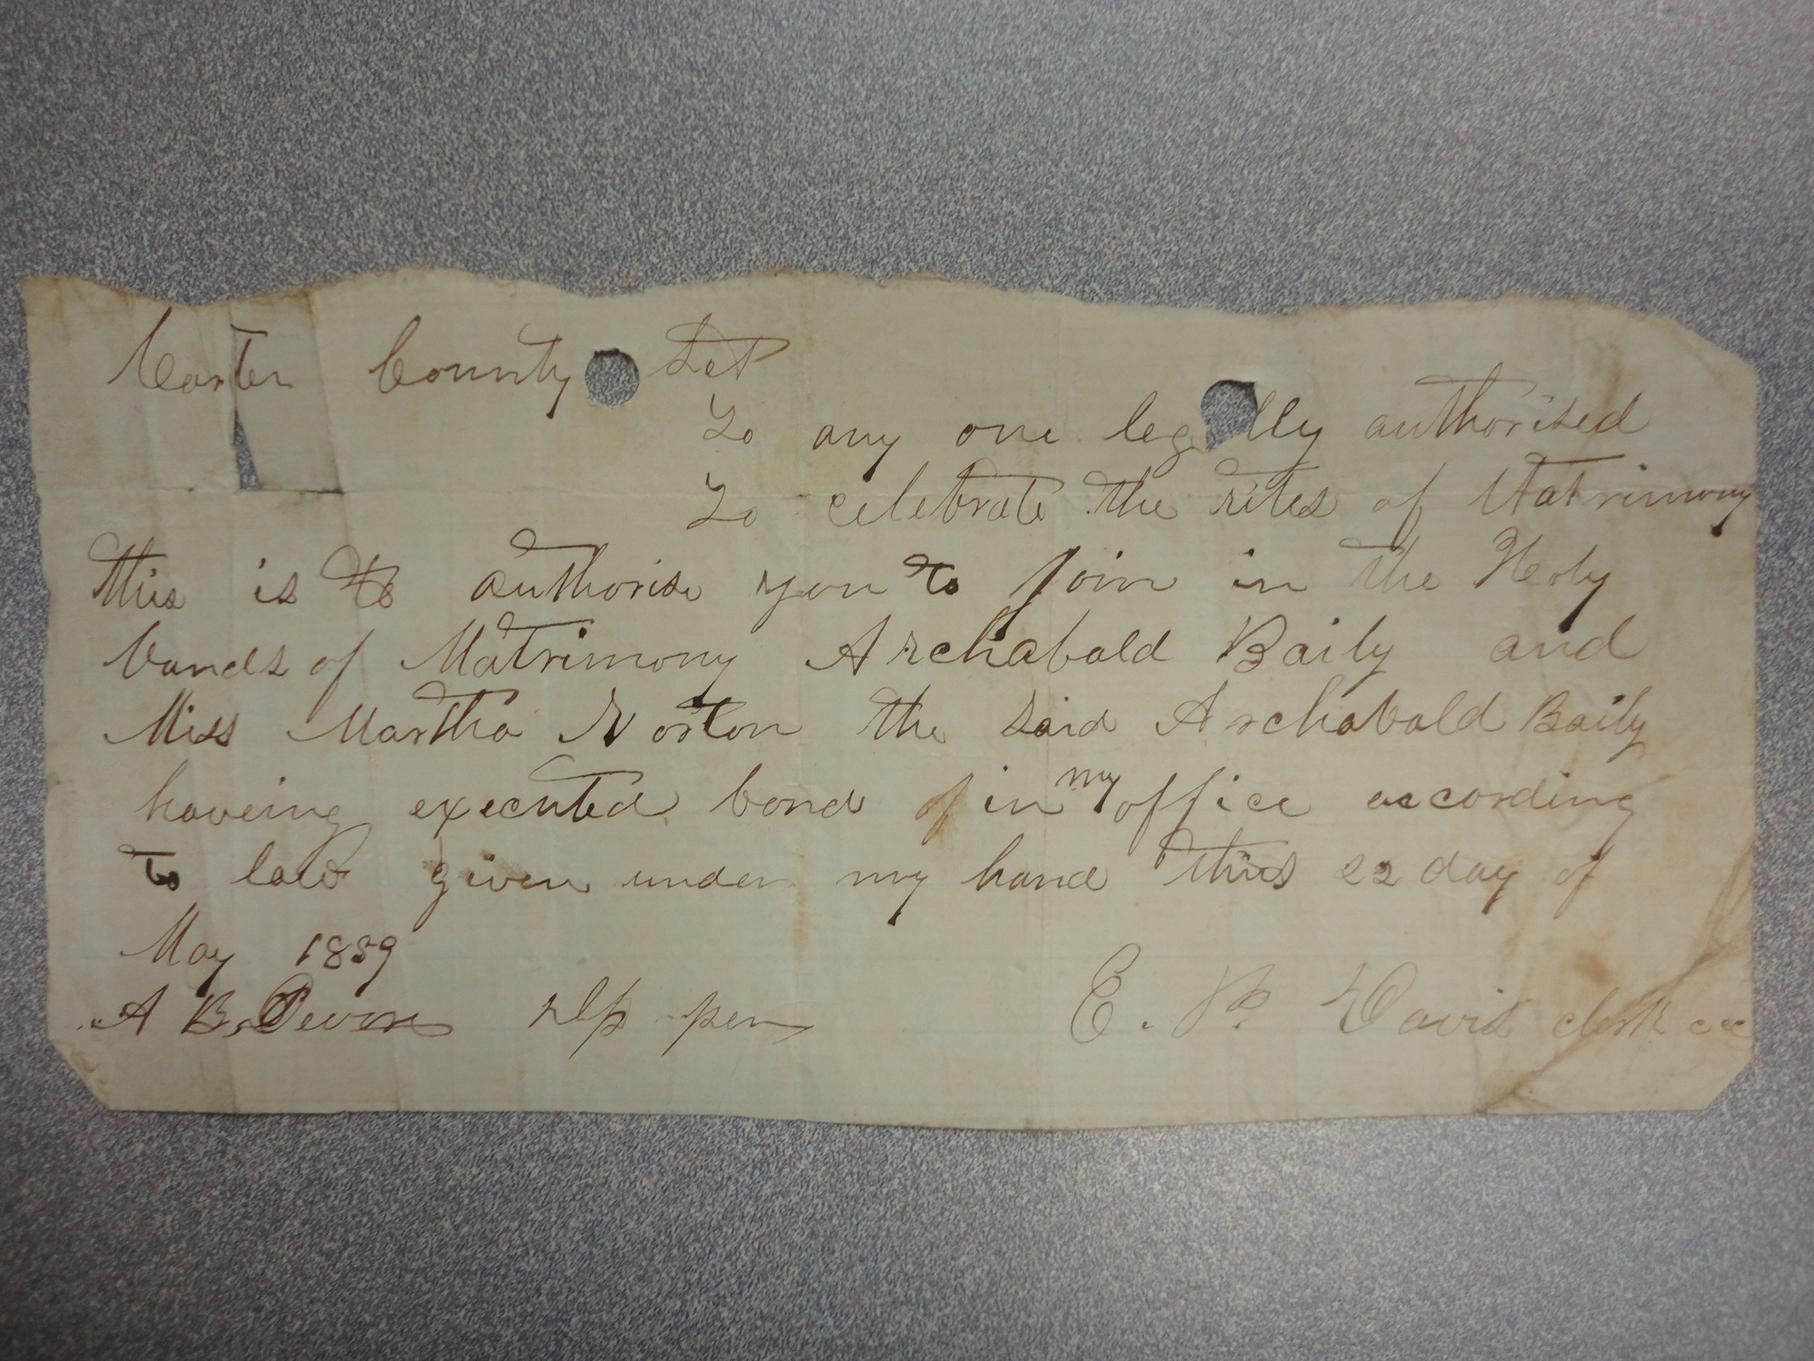 Carter County Sct
To any one legally authorised
To celebrate the rites of Matrimony
this is to authorise you to join in the Holy
bands of Matrimony Archabald Baily and
Miss Martha Norton the said Archabald Baily
haveing executed bond in my office according
to law given under my hand this 22 day of
May 1859
A B. pen E. Davis clerk cc